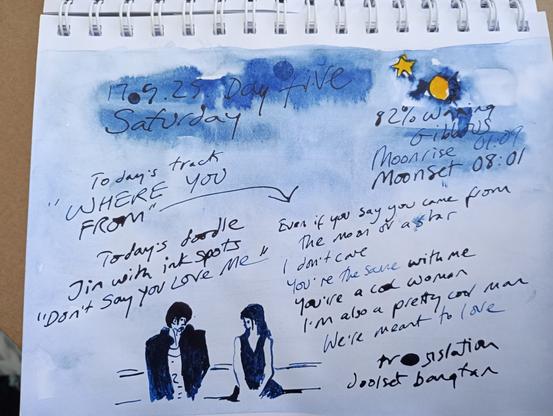 17.9.25 Day five
Saturday
82% Waning
Gibbous
Moonrise 01:09
Moonset 08:01
Today's track
"WHERE YOU
FROM"
Today's doodle
Jin with ink spots
"Don't Say You Love Me"
Even if you say you came from
The moon or a star
I don't care
You're the same with me
You're a cool woman
I'm also a pretty cool man
We're meant to love
translation
doolset bangtan